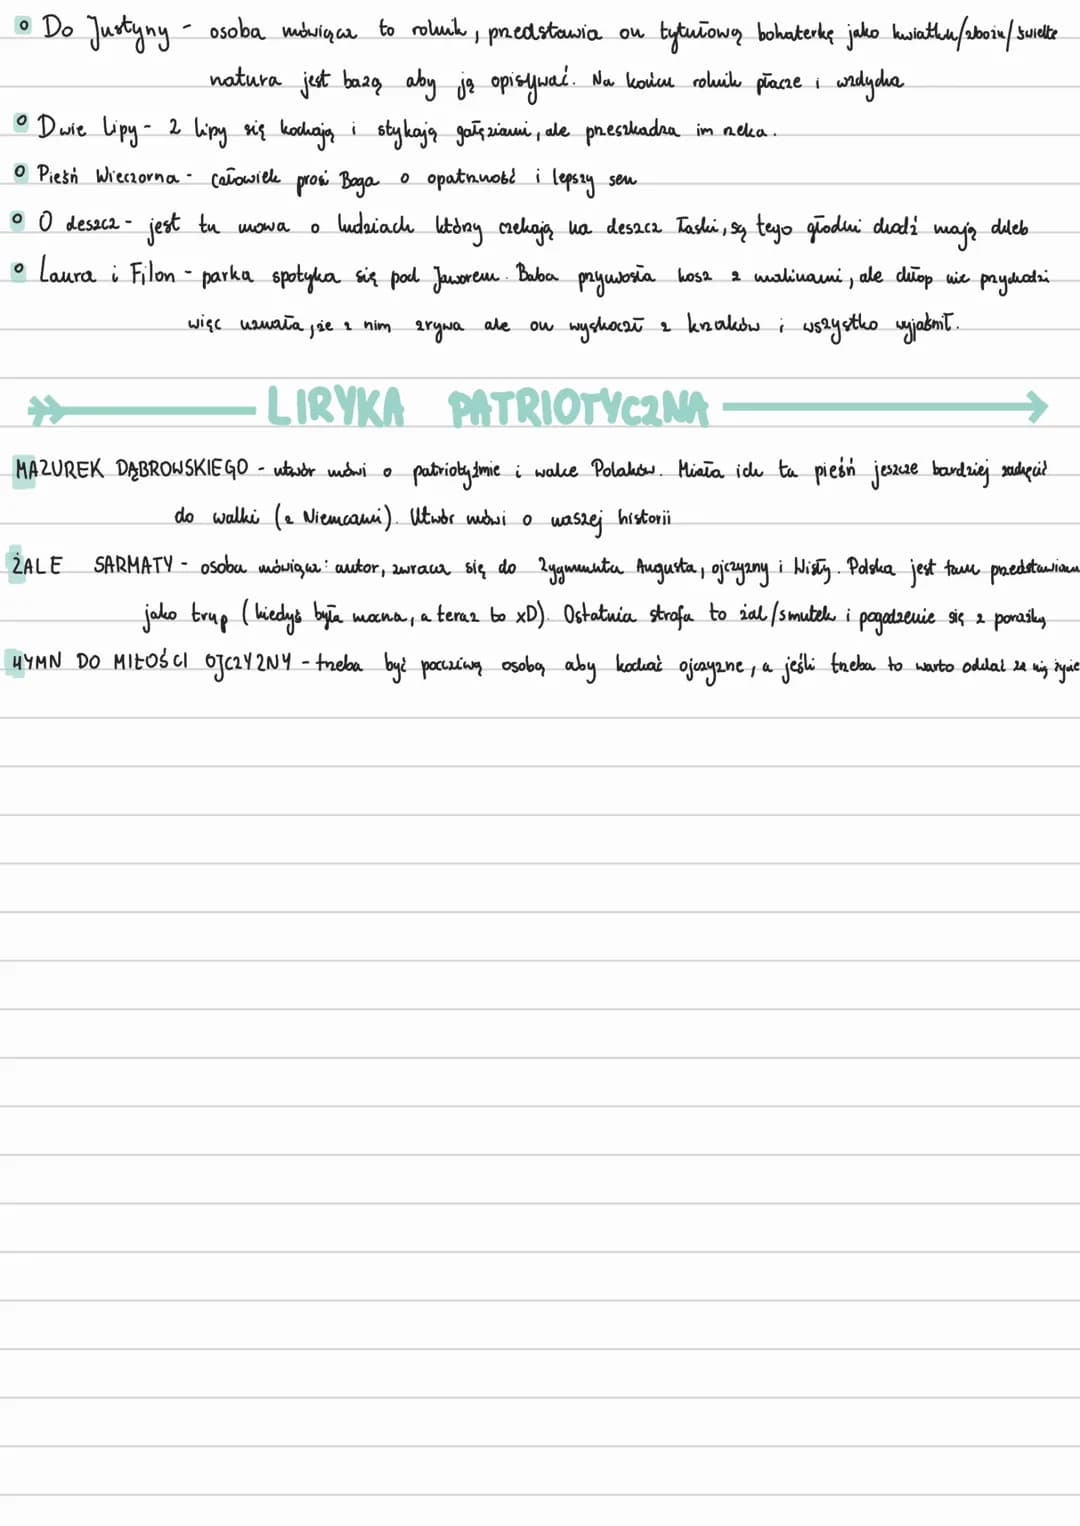 Do Justyny - osoba mówiąca to rolnik, przedstawia on tytułową bohaterkę jako kwiatku/zbożu/świetle
natura jest bazą aby ją opisywać. Na końcu rolnik płacze i wzdycha
Dwie Lipy - 2 lipy się kochają i stykają gałęziami, ale przeszkadza im rzeka.
Pieśń Wieczorna - całowiek prosi Boga o opatrzność i lepszy sen
O deszcz - jest tu mowa o ludziach który czekają na deszcz łaski, są tego głodni chodź mają chleb
Laura i Filon - parka spotyka się pod Jaworem. Baba przywosła kosz z malinami, ale chłop nie przychodzi
więc uznała, że z nim zrywa ale on wyskoczł z krzaków i wszystko wyjaśnił.
LIRYKA PATRIOTYCZNA
MAZUREK DĄBROWSKIEGO - utwór mówi o patriotyźmie i walce Polaków. Miała ich ta pieśń jeszcze bardziej zachęcić
do walki (z Niemcami). Utwór mówi o naszej historii
ŻALE SARMATY - osoba mówiąca: autor, zwraca się do Zygmunta Augusta, ojczyzny i Wisły. Polska jest tam przedstawiana
jako trup (kiedyś była mocna, a teraz to xD). Ostatnia strofa to żal/smutek i pogodzenie się z porażką
HYMN DO MIŁOŚCI OJCZYZNY - trzeba być poczciwą osobą aby kochać ojczyznę, a jeśli trzeba to warto oddać za nią życie